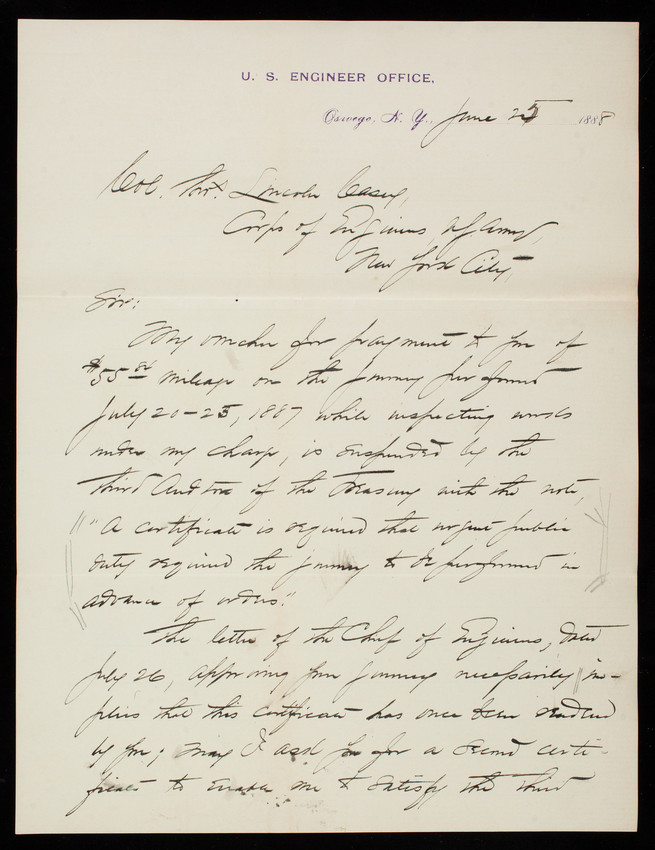 U. S. ENGINEER OFFICE,
Oswego, N. Y., June 25 1888
Col. Thos. Lincoln Casey,
Corps of Engineers, U.S. Army,
New York City,
Sir:
My voucher for payment to you of
$55 mileage on the journey performed
July 20-25, 1887 while inspecting works
under my charge, is suspended by the
Third Auditor of the Treasury with the note,
"A certificate is required that urgent public
duty required the journey to be performed in
advance of orders."
The letter of the Chief of Engineers, dated
July 26, approving your journey necessarily im-
plies that this certificate has once been rendered
by you; may I ask you for a second certi-
ficate to enable me to satisfy the Third